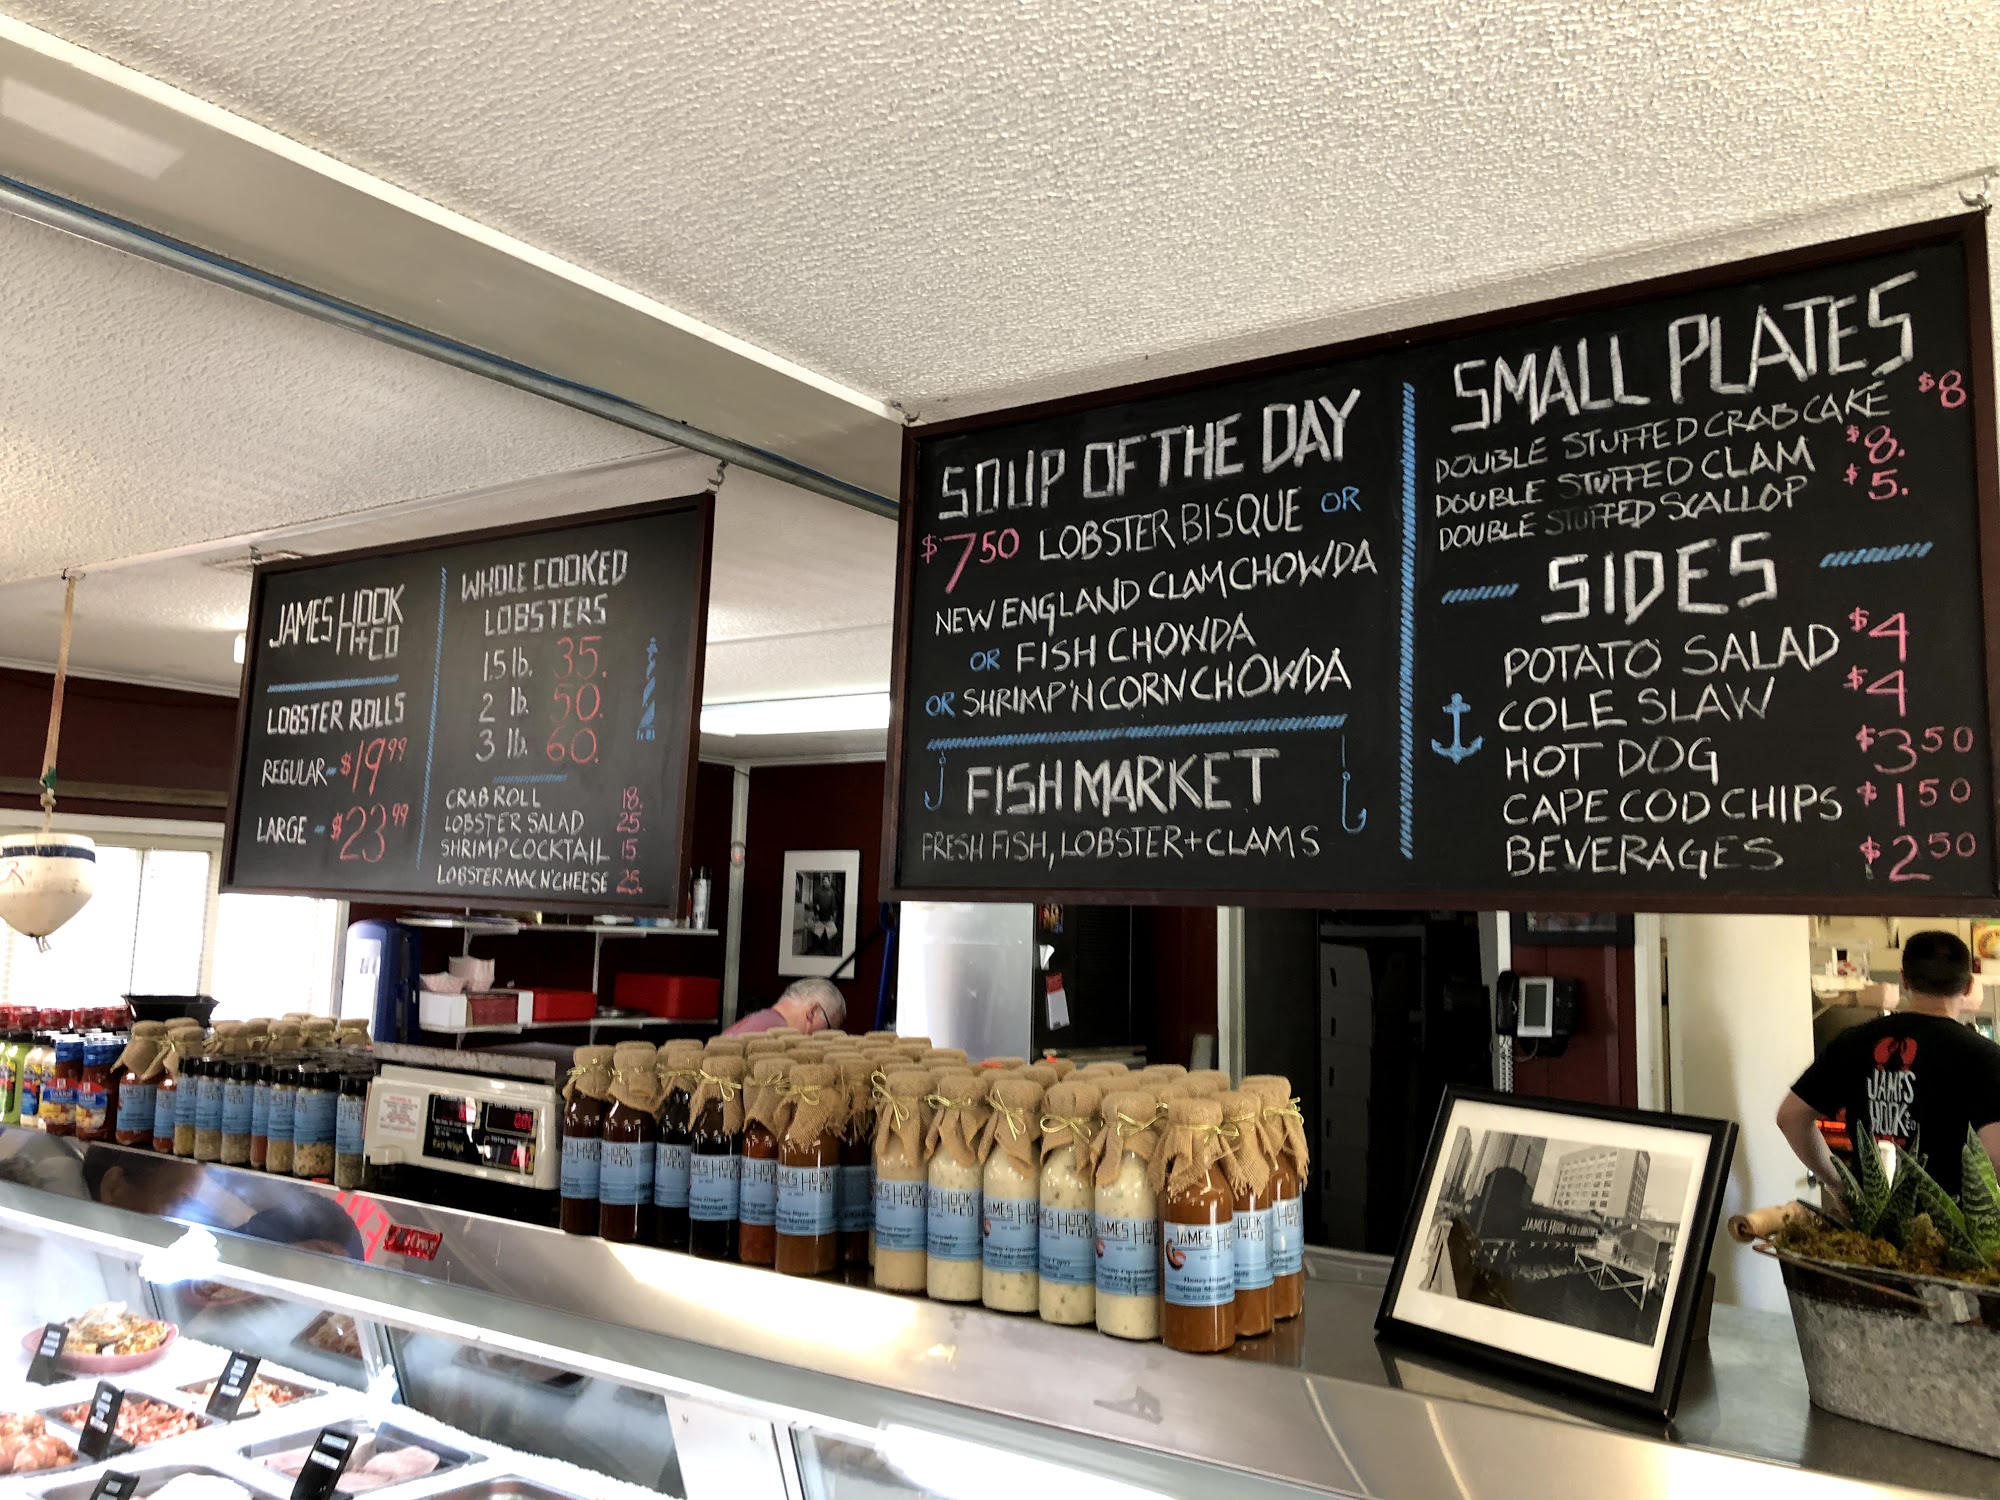 JAMES HOOK
+CO
LOBSTER ROLLS
REGULAR - $19.99
LARGE - $23.99
WHOLE COOKED
LOBSTERS
1.5 lb. 35.
2 lb. 50.
3 lb. 60.
CRAB ROLL 18.
LOBSTER SALAD 25.
SHRIMP COCKTAIL 15.
LOBSTER MAC N' CHEESE 25.
SOUP OF THE DAY
$7.50 LOBSTER BISQUE OR
NEW ENGLAND CLAM CHOWDA
OR FISH CHOWDA
OR SHRIMP 'N CORN CHOWDA
FISH MARKET
FRESH FISH, LOBSTER + CLAMS
SMALL PLATES
DOUBLE STUFFED CRAB CAKE $8
DOUBLE STUFFED CLAM $8.
DOUBLE STUFFED SCALLOP $5.
SIDES
POTATO SALAD $4
COLE SLAW $4
HOT DOG $3.50
CAPE COD CHIPS $1.50
BEVERAGES $2.50
JAMES
HOOK
+CO
JAMES HOOK
+CO
Salmon Marinade
JAMES HOOK + CO